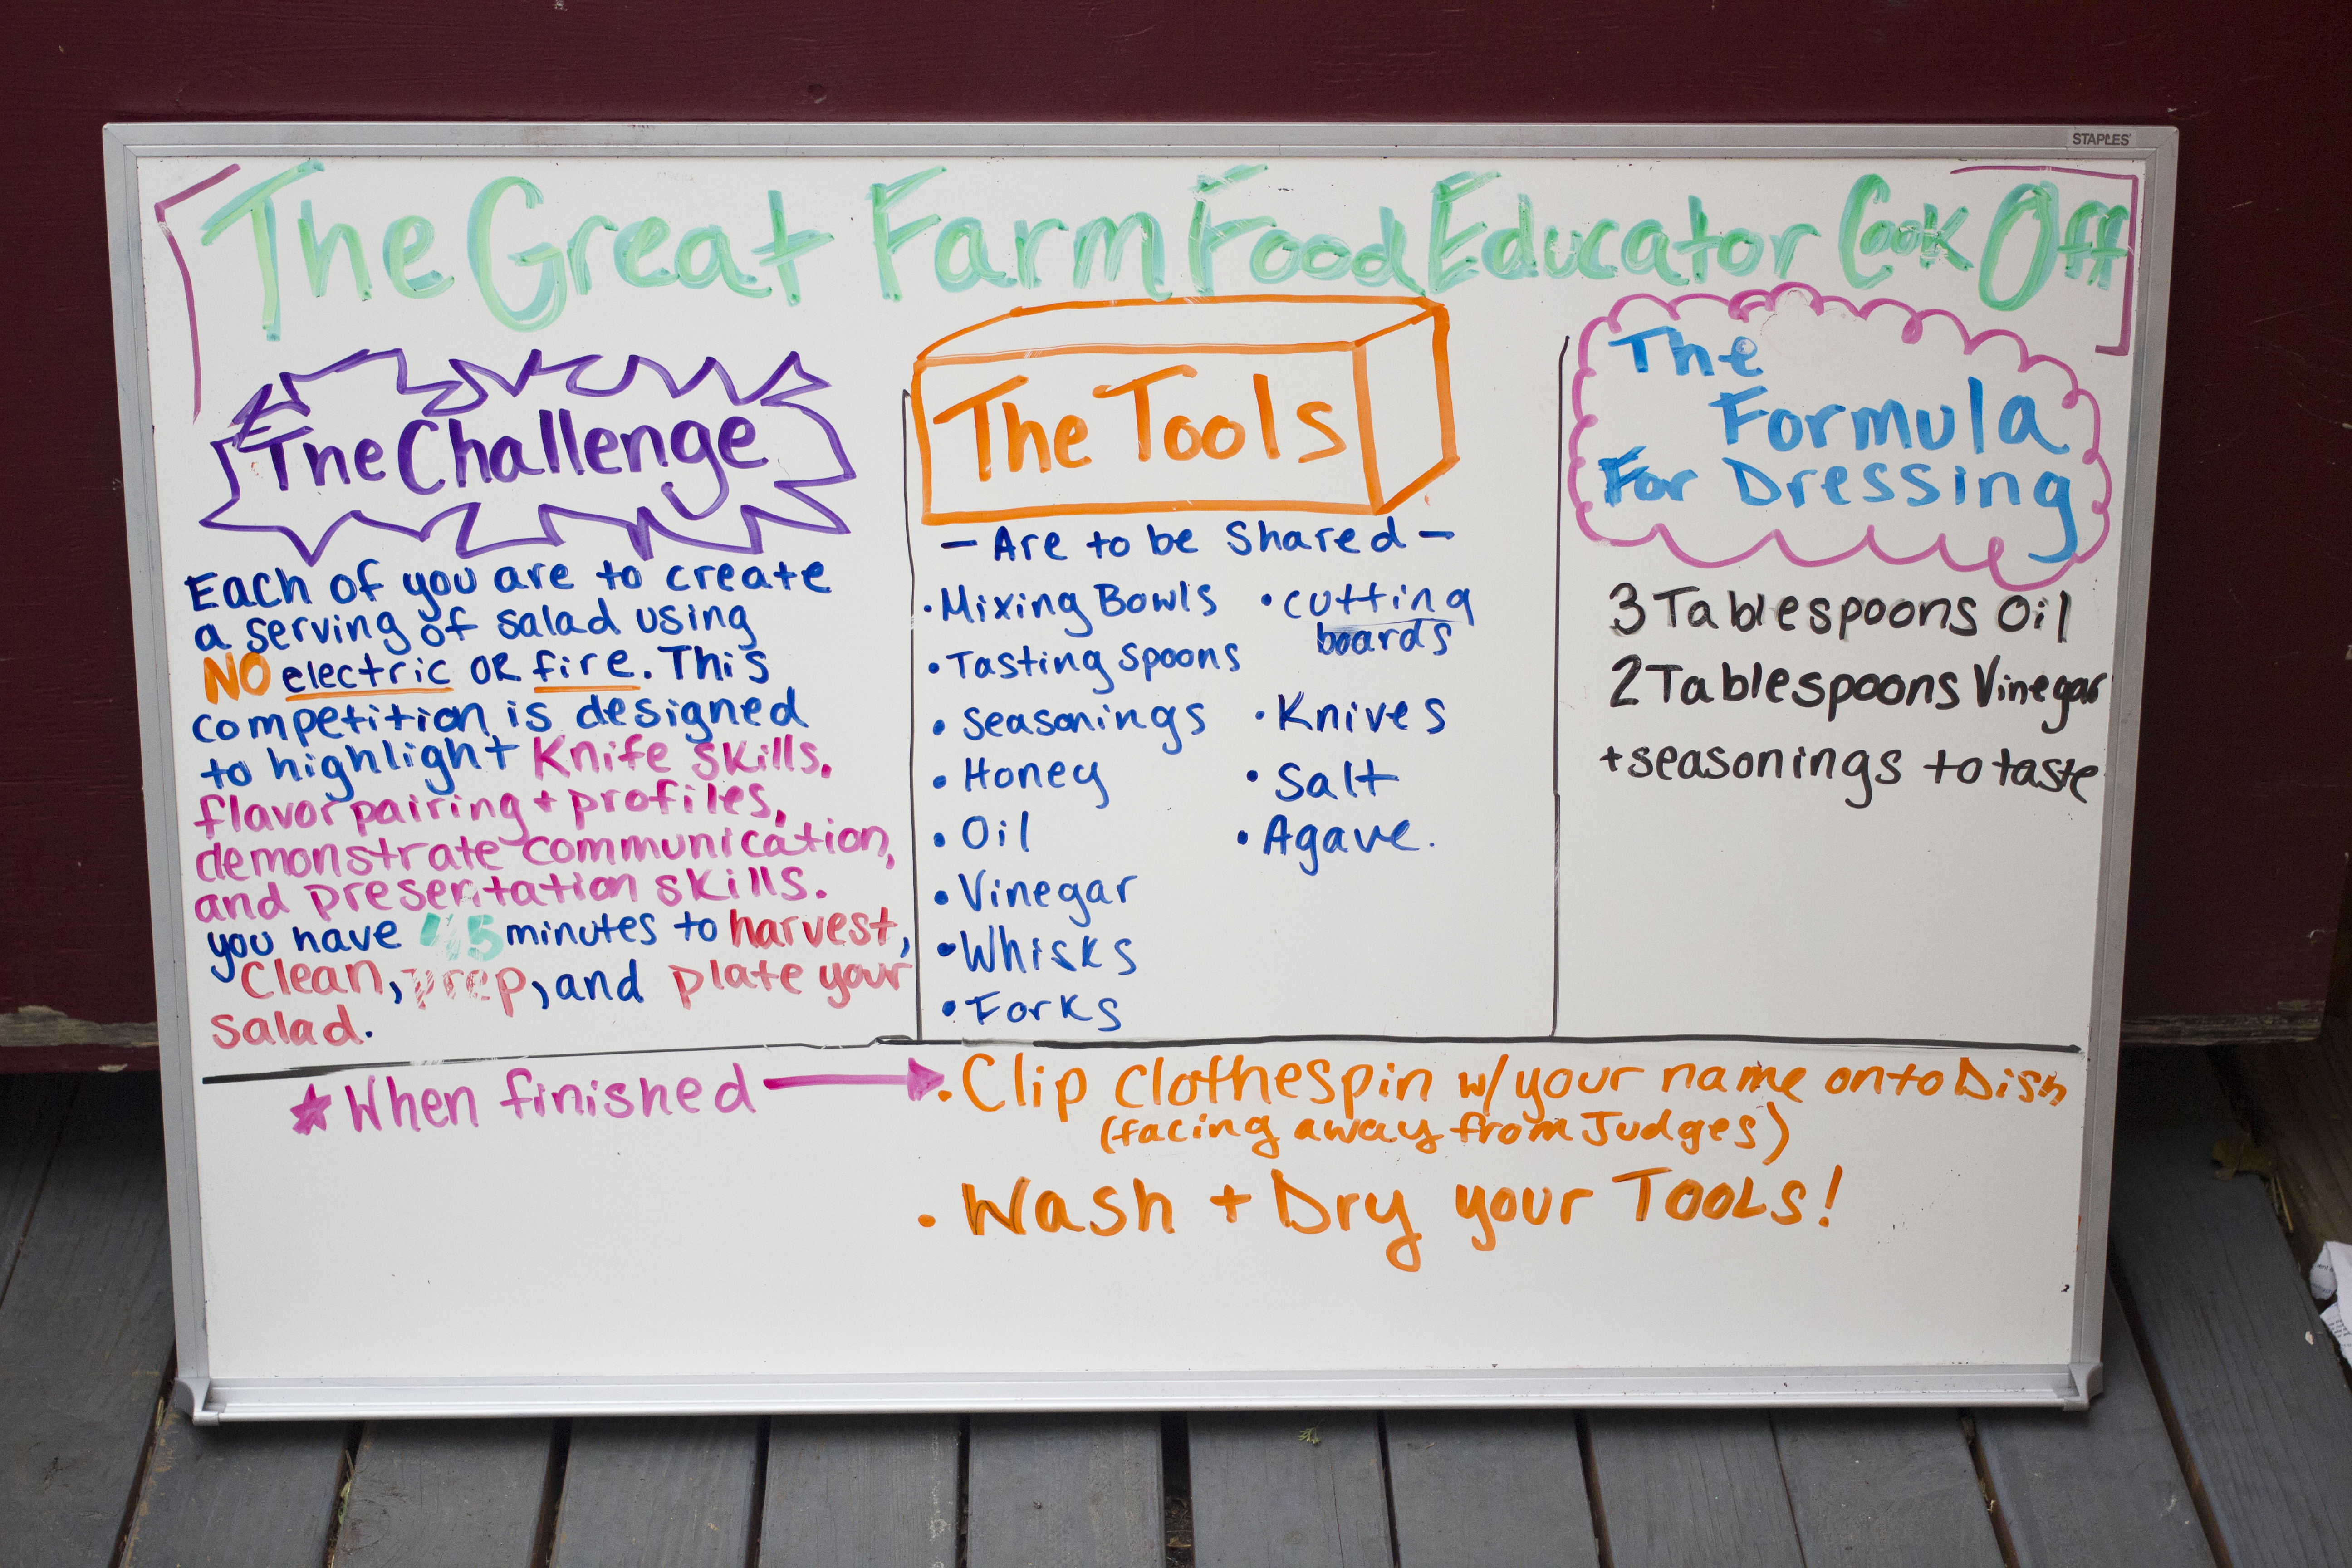 STAPLES
The Great Farm Food Educator Cook Off
The Challenge
Each of you are to create
a serving of salad using
NO electric OR fire. This
competition is designed
to highlight Knife skills,
flavor pairing + profiles,
demonstrate communication,
and presentation skills.
you have 45 minutes to harvest,
Clean, prep, and plate your
salad.
The Tools
- Are to be Shared -
• Mixing Bowls
• Tasting Spoons
• Seasonings
• Honey
• Oil
• Vinegar
• Whisks
• Forks
• cutting
boards
• Knives
• Salt
• Agave.
The
Formula
For Dressing
3 Tablespoons Oil
2 Tablespoons Vinegar
+ seasonings to taste
★ When finished →
• Clip Clothespin w/ your name onto Dish
(facing away from Judges)
• Wash + Dry your TOOLS!